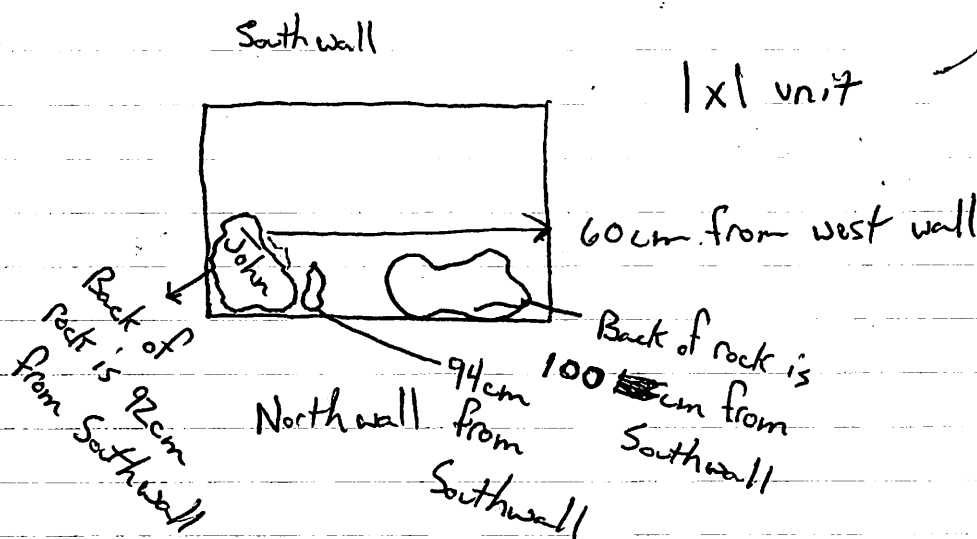 South wall
1x1 unit
60cm. from west wall
John
Back of
rock is
92cm
from Southwall
94cm
from
Southwall
Back of rock is
100 cm from
Southwall
North wall